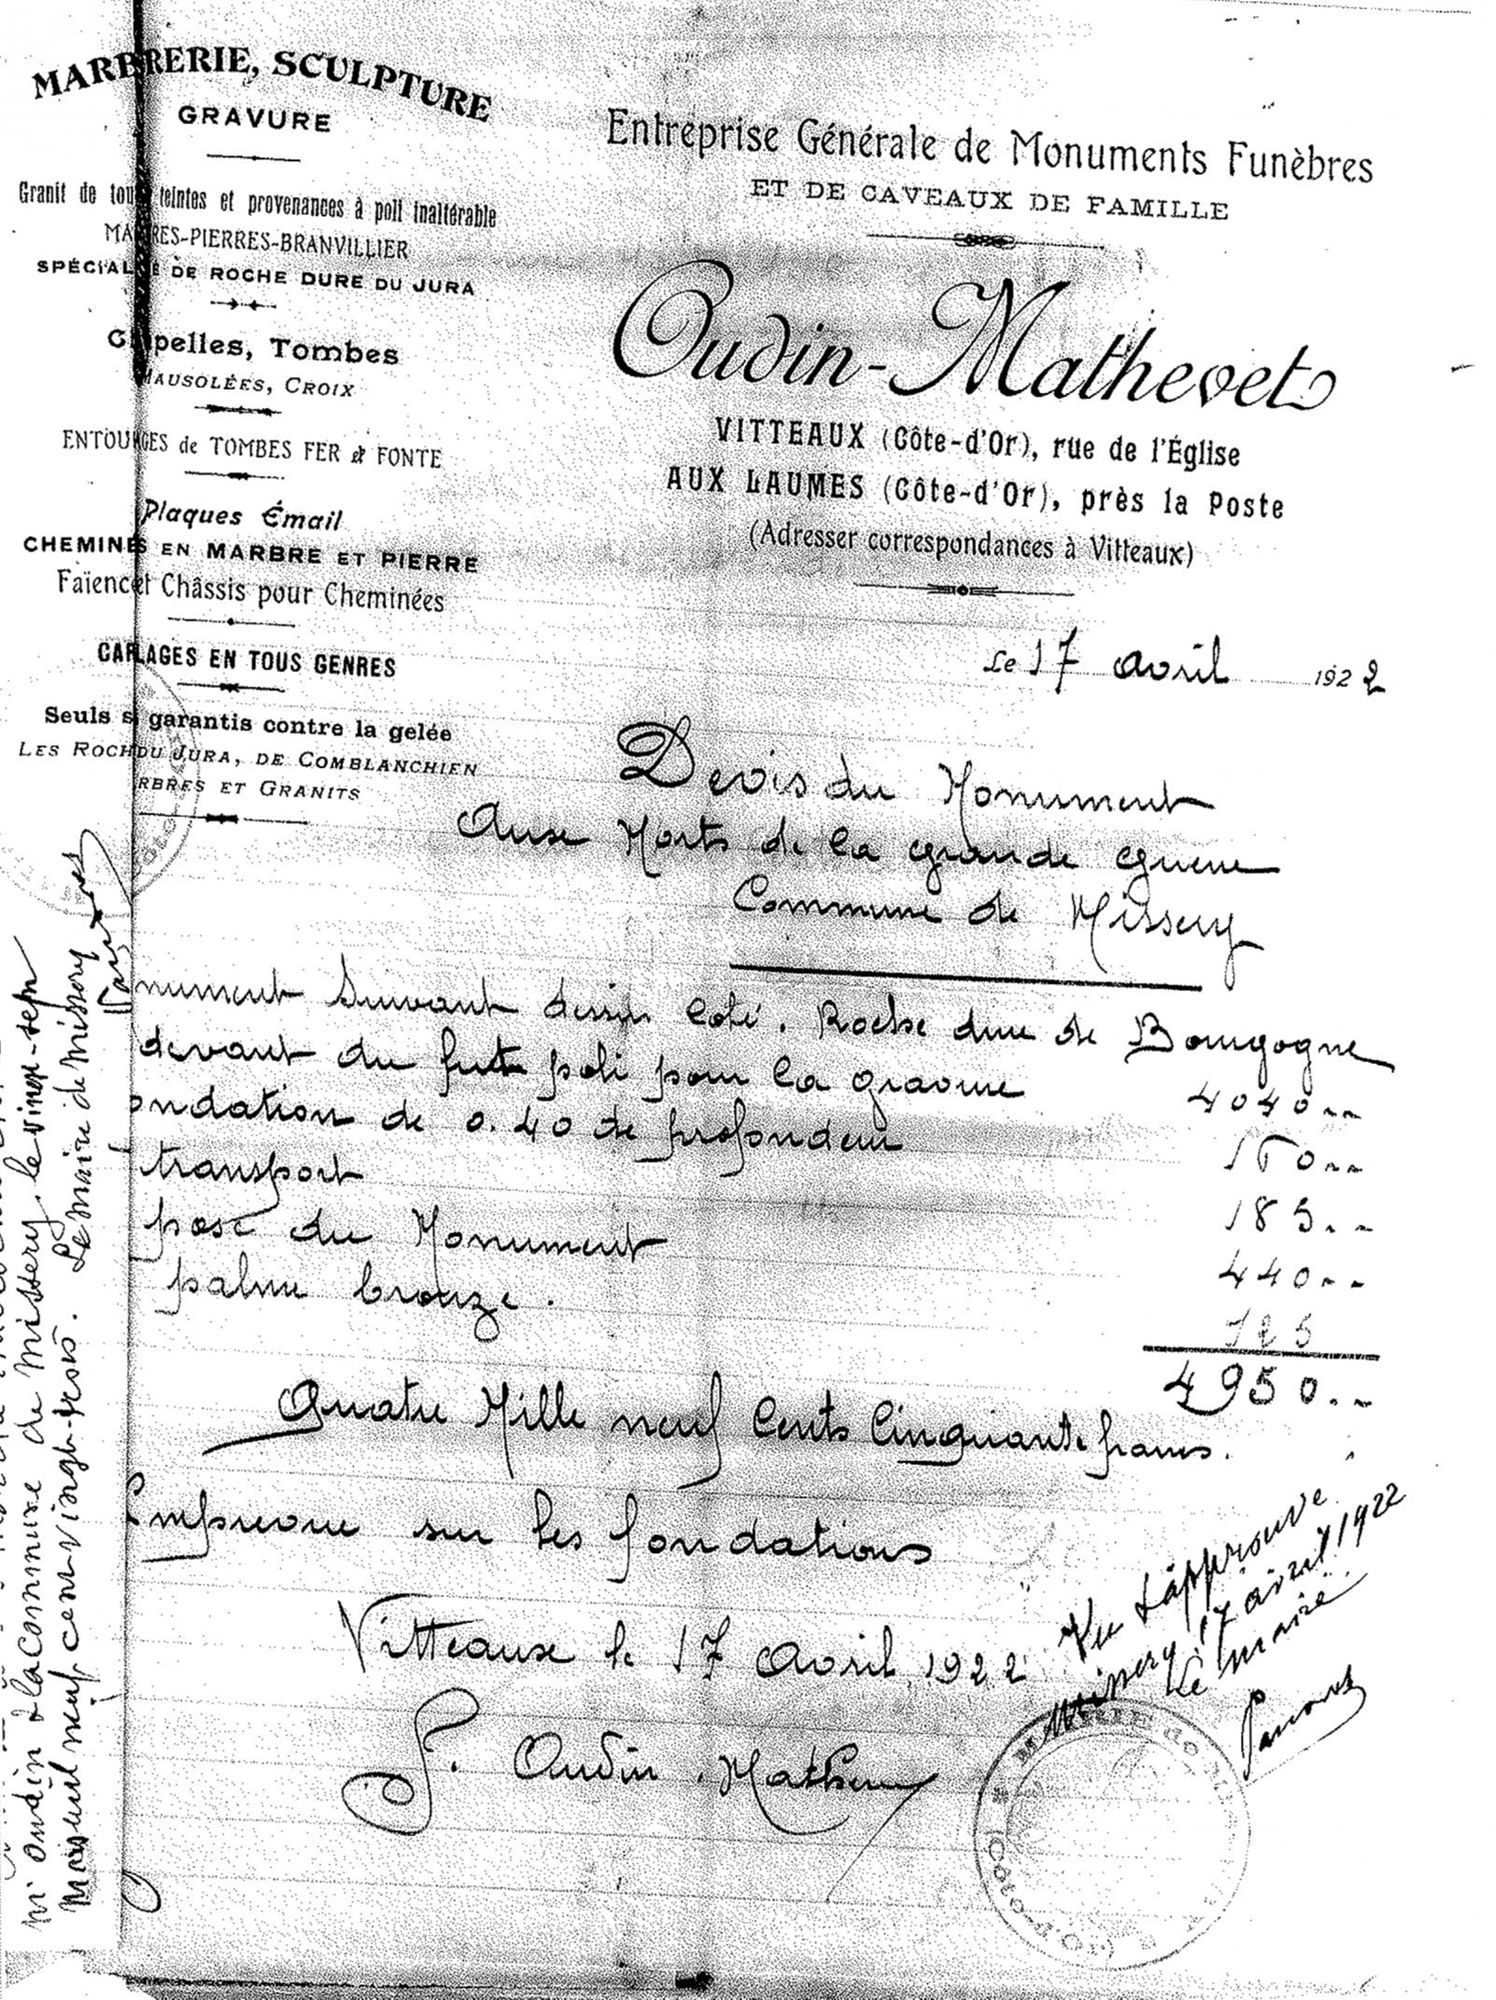 MARBRERIE, SCULPTURE
GRAVURE
Granit de tou teintes et provenances à poli inaltérable
MA RES-PIERRES-BRANVILLIER
SPÉCIAL É DE ROCHE DURE DU JURA
C pelles, Tombes
MAUSOLÉES, CROIX
ENTOU GES de TOMBES FER & FONTE
Plaques Émail
CHEMINÉS EN MARBRE ET PIERRE
Faïence et Châssis pour Cheminées
CAR LAGES EN TOUS GENRES
Seuls s garantis contre la gelée
LES ROCH DU JURA, DE COMBLANCHIEN
RBRES ET GRANITS
Entreprise Générale de Monuments Funèbres
ET DE CAVEAUX DE FAMILLE
Oudin-Mathevet
VITTEAUX (Côte-d'Or), rue de l'Église
AUX LAUMES (Côte-d'Or), près la Poste
(Adresser correspondances à Vitteaux)
Le 17 avril 1922
Devis du Monument
Aux Morts de la grande guerre
Commune de Missery
nument suivant dessin coté. Roche dure de Bourgogne
devant du fut poli pour la gravure 4040--
ondation de 0.40 de profondeur 160--
transport 185--
pose du Monument 440--
palme bronze. 125
4950--
Quatre Mille neuf Cents Cinquante francs.
Imprevue sur les fondations
Vitteaux le 17 avril 1922
Oudin-Mathevet
Vu & approuvé
Missery 17 avril 1922
Le maire
MAIRIE de
(Côte-d'Or)
Mr Oudin & la Commune de Missery, le vingt-sept
Mars mil neuf cent vingt-trois. Le Maire de Missery